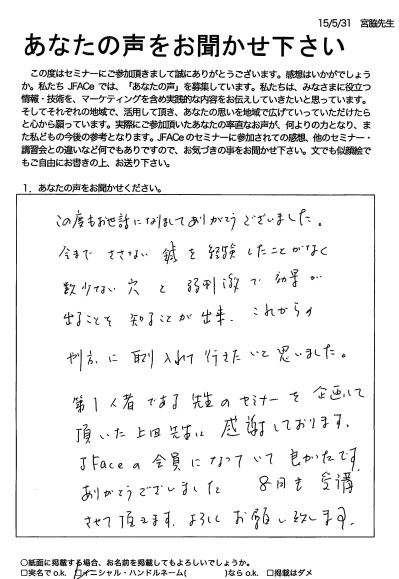 15/5/31　宮脇先生
あなたの声をお聞かせ下さい
この度はセミナーにご参加頂きまして誠にありがとうございます。感想はいかがでしょう
か。私たち JFACe では、「あなたの声」を募集しています。私たちは、みなさまに役立つ
情報・技術を、マーケティングを含め実践的な内容をお伝えしていきたいと思っています。
そしてそれぞれの地域で、活用して頂き、あなたの思いを地域で広げていっていただけたら
と心から願っています。実際にご参加頂いたあなたの率直なお声が、何よりの力となり、ま
た私どもの今後の参考となります。JFACeのセミナーに参加されての感想、他のセミナー・
講習会との違いなど何でもありですので、お気づきの事をお聞かせ下さい。文でも似顔絵で
もご自由にお書きの上、お送り下さい。
1．あなたの声をお聞かせください。
この度もお世話になりましてありがとうございました。
今まで ささない 鍼を経験したことがなく
数少ない穴と弱刺激で効果が
出ることを知ることが出来、これからの
やり方に取り入れて行きたいと思いました。
第1人者である先生のセミナーを企画して
頂いた上田先生に感謝しております。
JFaceの会員になっていて良かったです。
ありがとうございました　8回も受講
させて頂きます。よろしくお願い致します。
〇紙面に掲載する場合、お名前を掲載してもよろしいでしょうか。
□実名でo.k. ☑イニシャル・ハンドルネーム(　　　　)ならo.k. □掲載はダメ